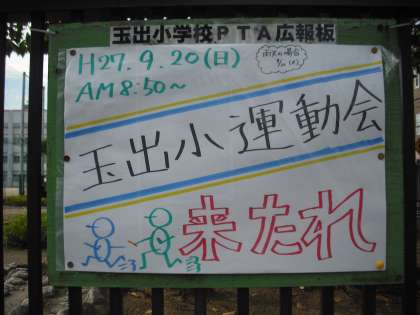 玉出小学校PTA広報板
H27.9.20(日)
雨天の場合
AM8:50~
玉出小運動会
来たれ